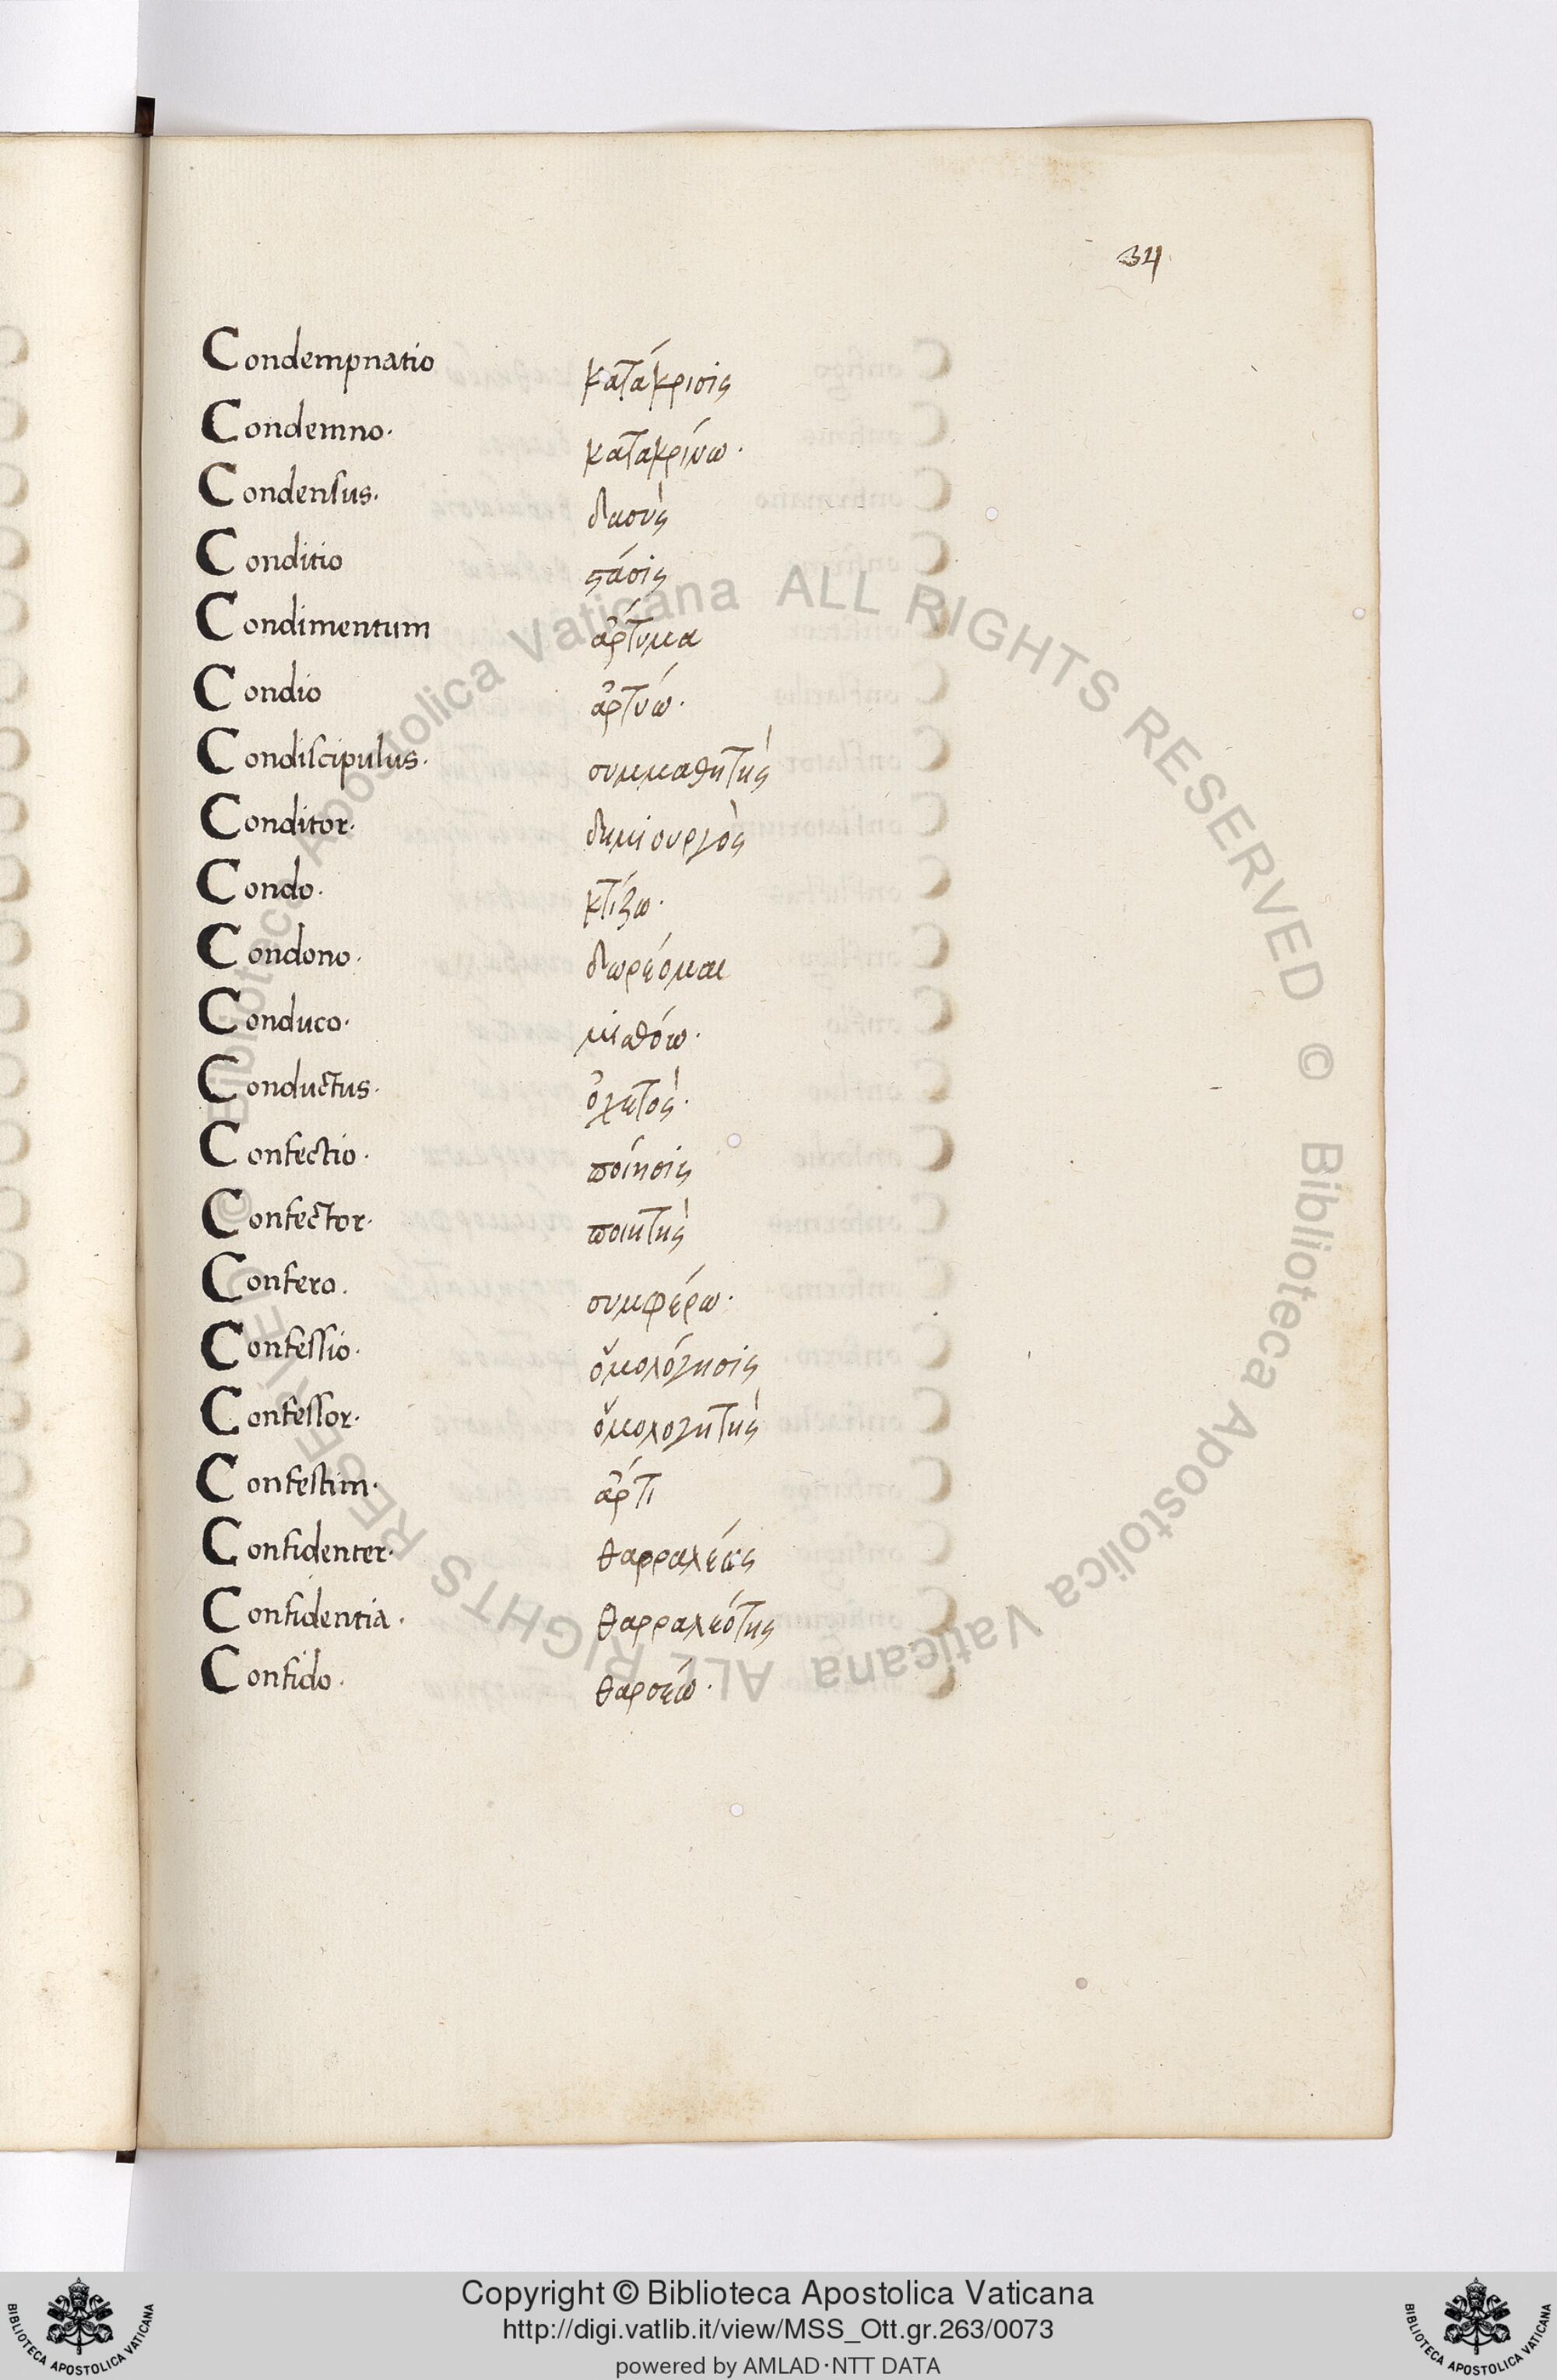 34
Condempnatio κατάκρισις
Condemno· κατακρίνω·
Condensus· δασὺς
Conditio στάσις
Condimentum ἄρτυμα
Condio ἀρτύω·
Condiscipulus· συμμαθητὴς
Conditor· δημιουργὸς
Condo· κτίζω·
Condono· δωρέομαι
Conduco· μισθόω·
Conductus· ὀχετὸς·
Confectio· ποίησις
Confector· ποιητὴς
Confero· συμφέρω·
Confessio· ὁμολόγησις
Confessor· ὁμολογητὴς
Confestim· ἄρτι
Confidenter· θαρραλέως
Confidentia· θαρραλεότης
Confido· θαρσέω·
Biblioteca Apostolica Vaticana ALL RIGHTS RESERVED © Biblioteca Apostolica Vaticana ALL RIGHTS RESERVED ©
Copyright © Biblioteca Apostolica Vaticana
http://digi.vatlib.it/view/MSS_Ott.gr.263/0073
powered by AMLAD·NTT DATA
BIBLIOTECA APOSTOLICA VATICANA
BIBLIOTECA APOSTOLICA VATICANA